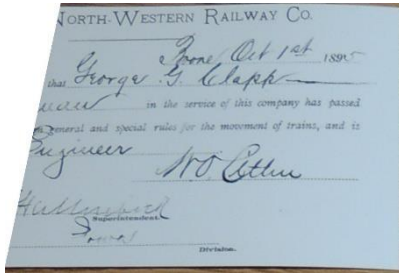 NORTH-WESTERN RAILWAY CO.
Boone Oct 1st 1895
that George G. Clapp
in the service of this company has passed
general and special rules for the movement of trains, and is
Engineer
Superintendent.
Iowa
Division.